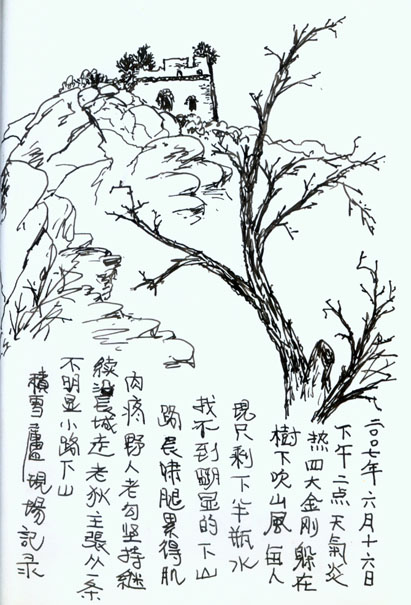 二〇〇七年六月十六日
下午二点天氣炎
热四大金刚躲在
樹下吹山風每人
現只剩下半瓶水
找不到明显的下山
路長啸腿累得肌
肉疼野人老勾坚持継
续沿長城走老狄主張从一条
不明显小路下山
積雪廬現場記录